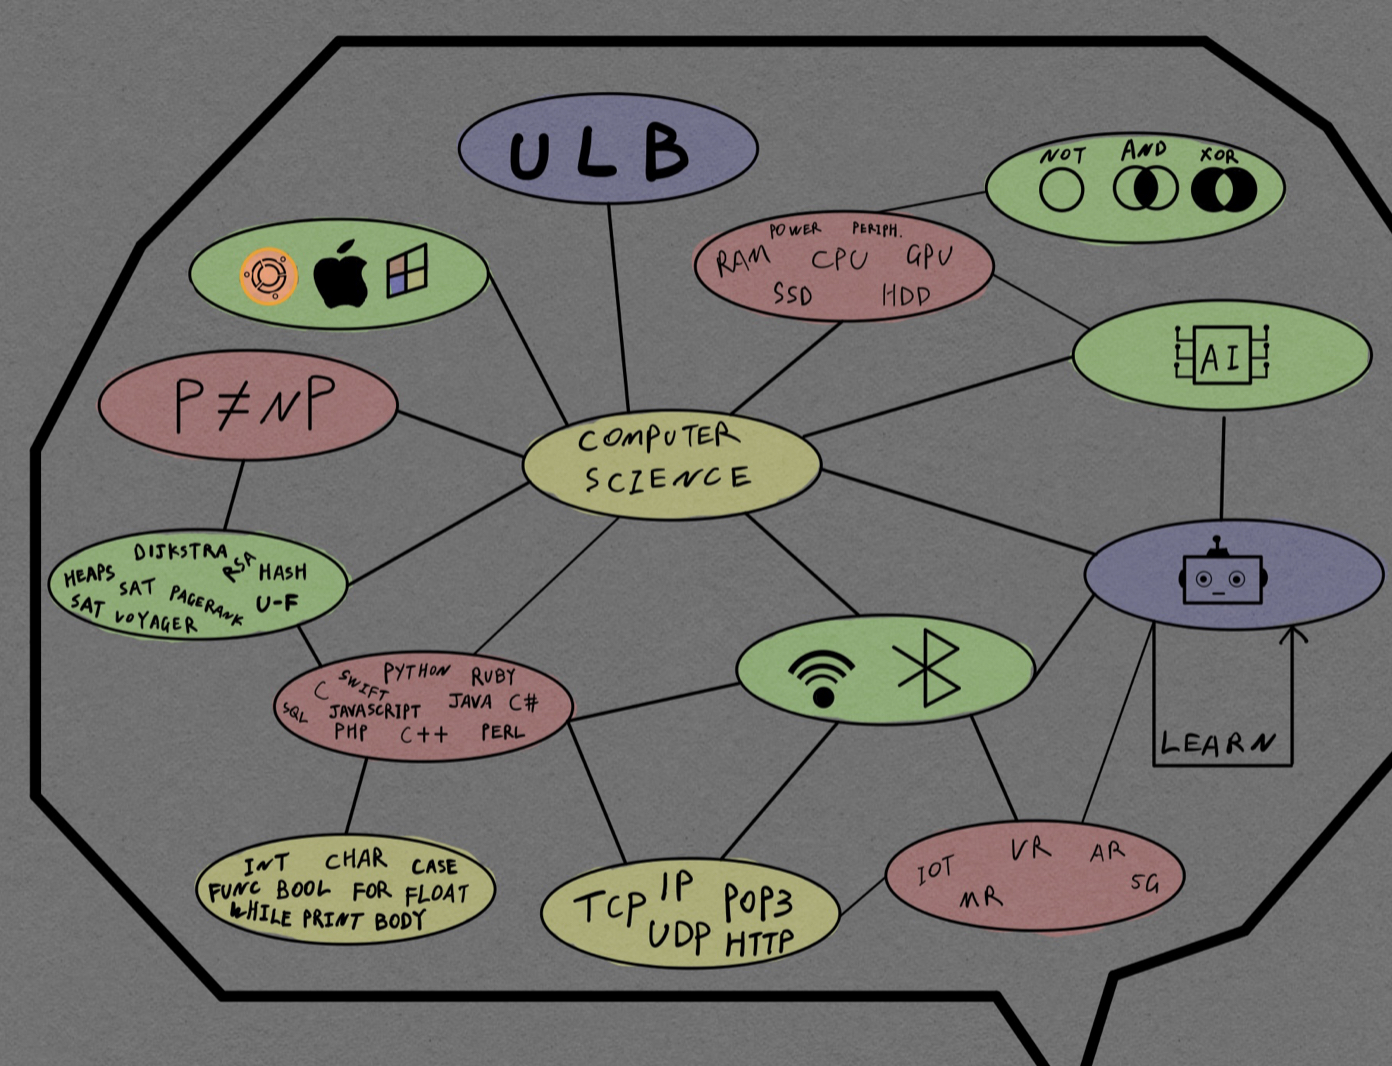 ULB
NOT AND XOR
POWER PERIPH.
RAM CPU GPU
SSD HDD
AI
P≠NP
COMPUTER
SCIENCE
DIJKSTRA
HEAPS RSA HASH
SAT PAGERANK U-F
SAT VOYAGER
PYTHON RUBY
C SWIFT JAVA C#
SQL JAVASCRIPT
PHP C++ PERL
LEARN
INT CHAR CASE
FUNC BOOL FOR FLOAT
WHILE PRINT BODY
TCP IP POP3
UDP HTTP
IOT VR AR
MR 5G